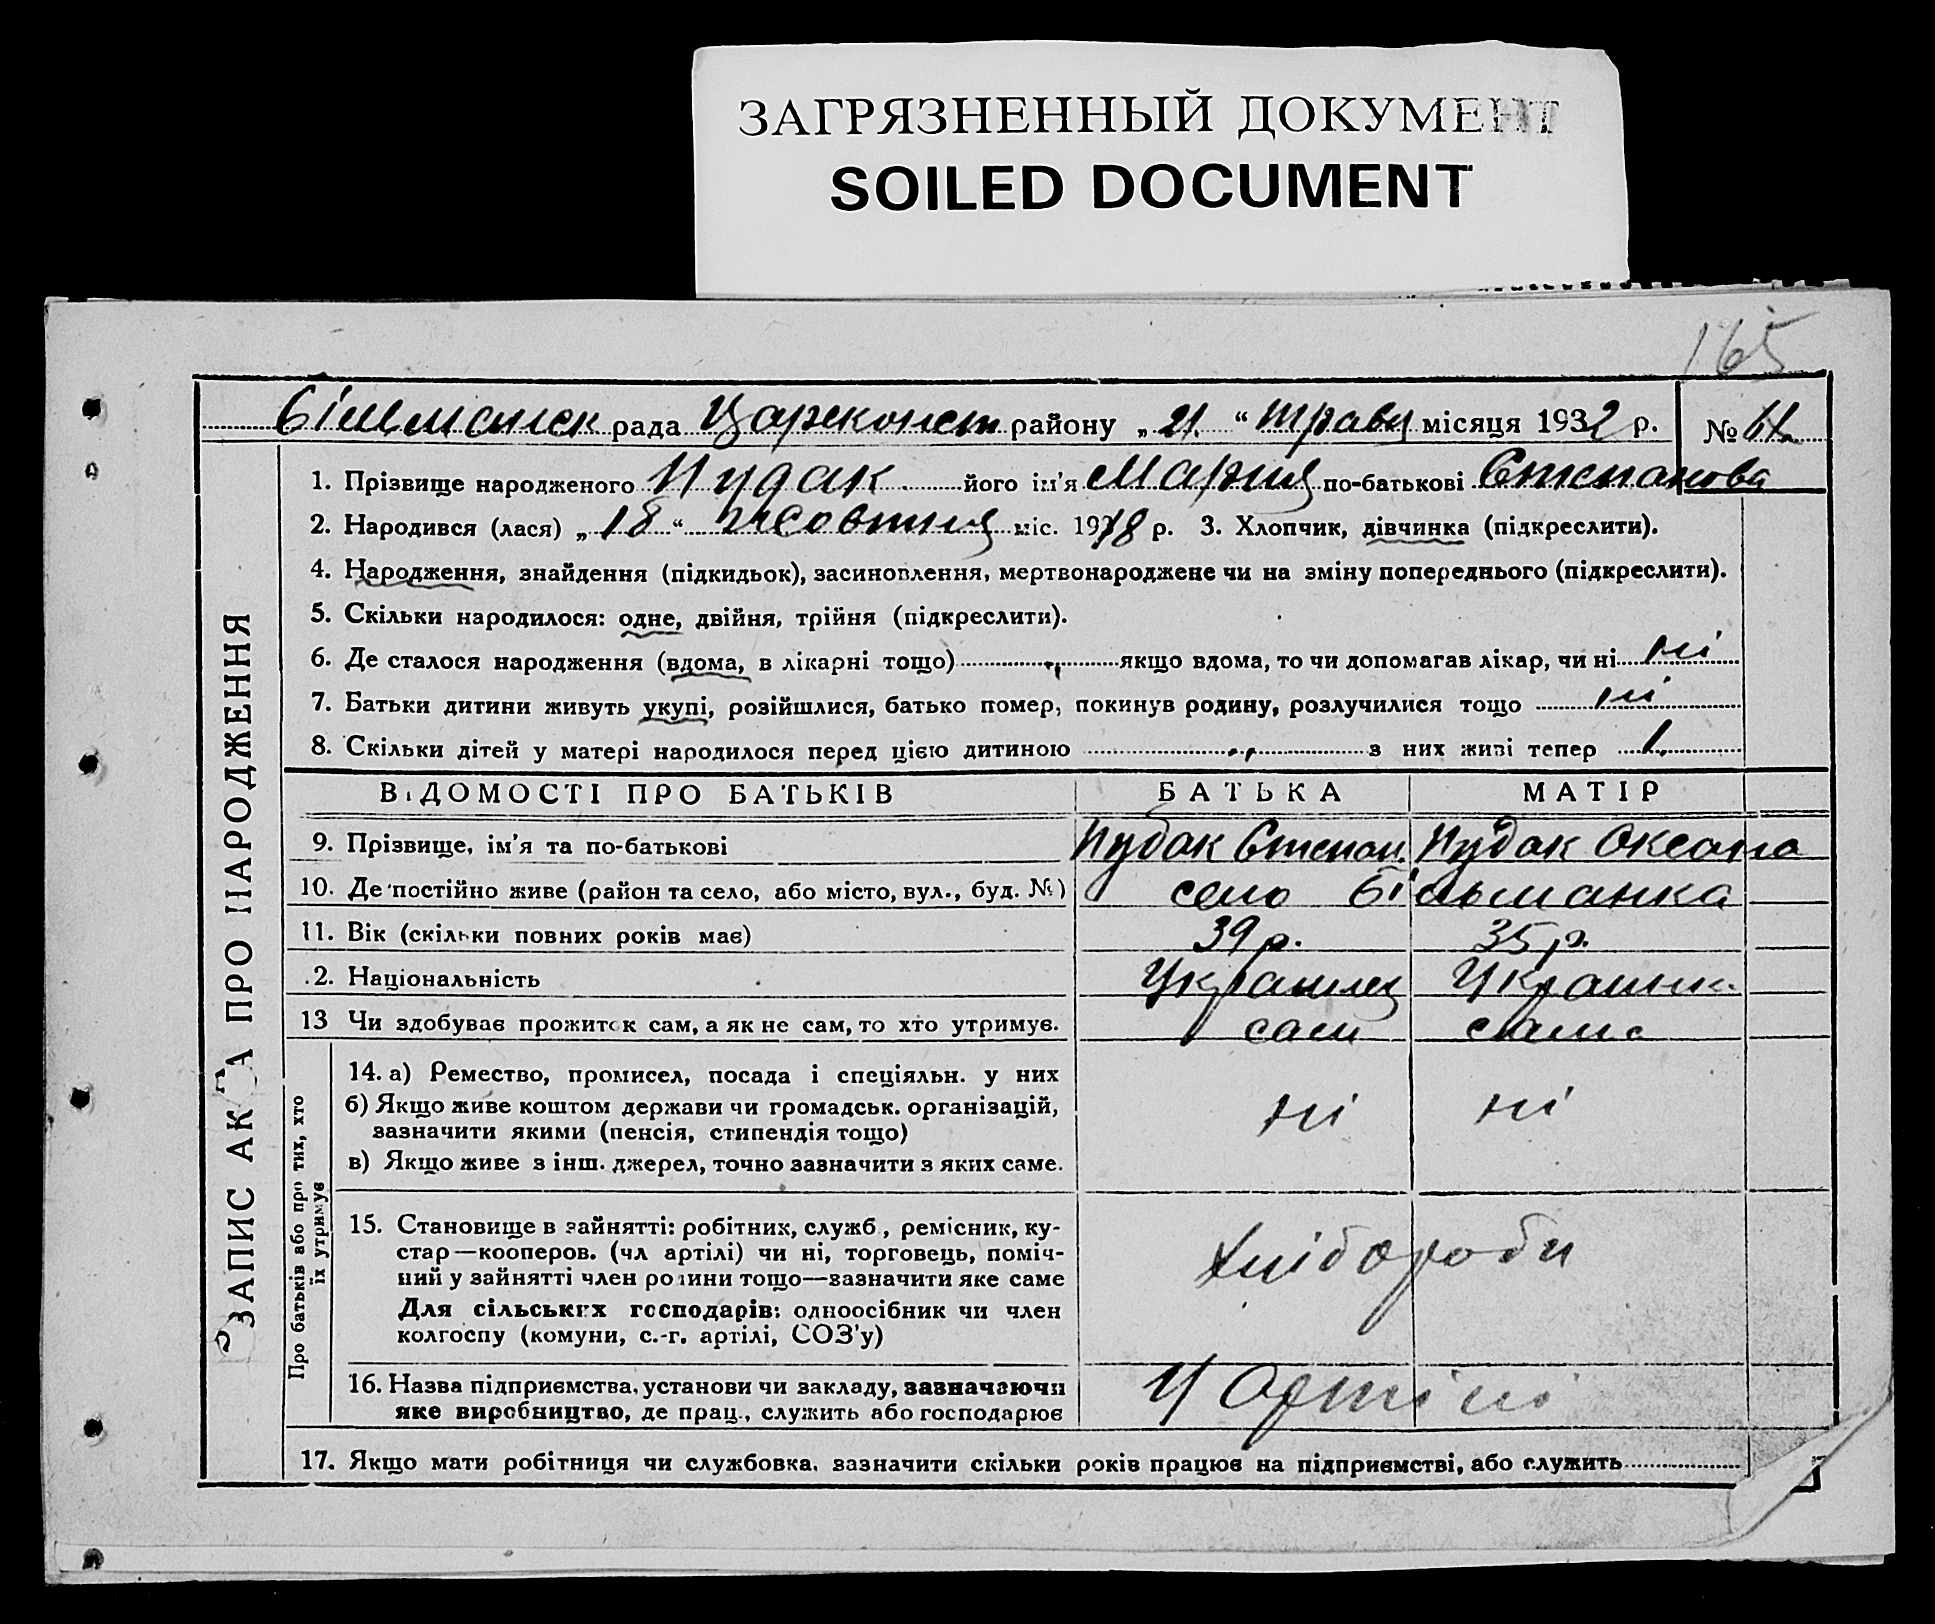 ЗАГРЯЗНЕННЫЙ ДОКУМЕНТ
SOILED DOCUMENT
165
Більманск рада Царекопст район​у „21.“ травц місяця 1932 р. №
ЗАПИС АКТА ПРО НАРОДЖЕННЯ
1. Прізвище народженого Пудак його ім'я Мария по-батькові Степанова
2. Народився (лася) „18“ жовтня міс. 1918 р. 3. Хлопчик, дівчинка (підкреслити).
4. Народження, знайдення (підкидьок), засиновлення, мертвонароджене чи на зміну попереднього (підкреслити).
5. Скільки народилося: одне, двійня, трійня (підкреслити).
6. Де сталося народження (вдома, в лікарні тощо) „ якщо вдома, то чи допомагав лікар, чи ні ні
7. Батьки дитини живуть укупі, розійшлися, батько помер, покинув родину, розлучилися тощо ні
8. Скільки дітей у матері народилося перед цією дитиною „ з них живі тепер 1.
ВІДОМОСТІ ПРО БАТЬКІВ БАТЬКА МАТІР
9. Прізвище, ім'я та по-батькові Пудак Степан. Пудак Оксана
10. Де постійно живе (район та село, або місто, вул., буд. №) село Більманка
11. Вік (скільки повних років має) 39 р. 35 р.
12. Національність Украінец Украинка
13 Чи здобуває прожиток сам, а як не сам, то хто утримує. сам сама
Про батьків або про тих, хто
їх утримує
14. а) Ремество, промисел, посада і спеціяльн. у них
б) Якщо живе коштом держави чи громадськ. організацій,
зазначити якими (пенсія, стипендія тощо) ні ні
в) Якщо живе з інш. джерел, точно зазначити з яких саме.
15. Становище в зайнятті: робітник, служб., ремісник, ку-
стар—кооперов. (чл артілі) чи ні, торговець, поміч-
ний у зайнятті член родини тощо—зазначити яке саме хлібороби
Для сільських господарів: одноосібник чи член
колгоспу (комуни, с.-г. артілі, СОЗ'у)
16. Назва підприємства, установи чи закладу, зазначаючи
яке виробництво, де прац., служить або господарює У Артілі
17. Якщо мати робітниця чи службовка, зазначити скільки років працює на підприємстві, або служить